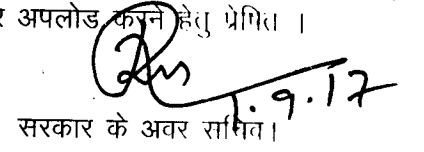 अपलोड करने हेतु प्रेषित ।
1.9.17
सरकार के अवर सचिव।